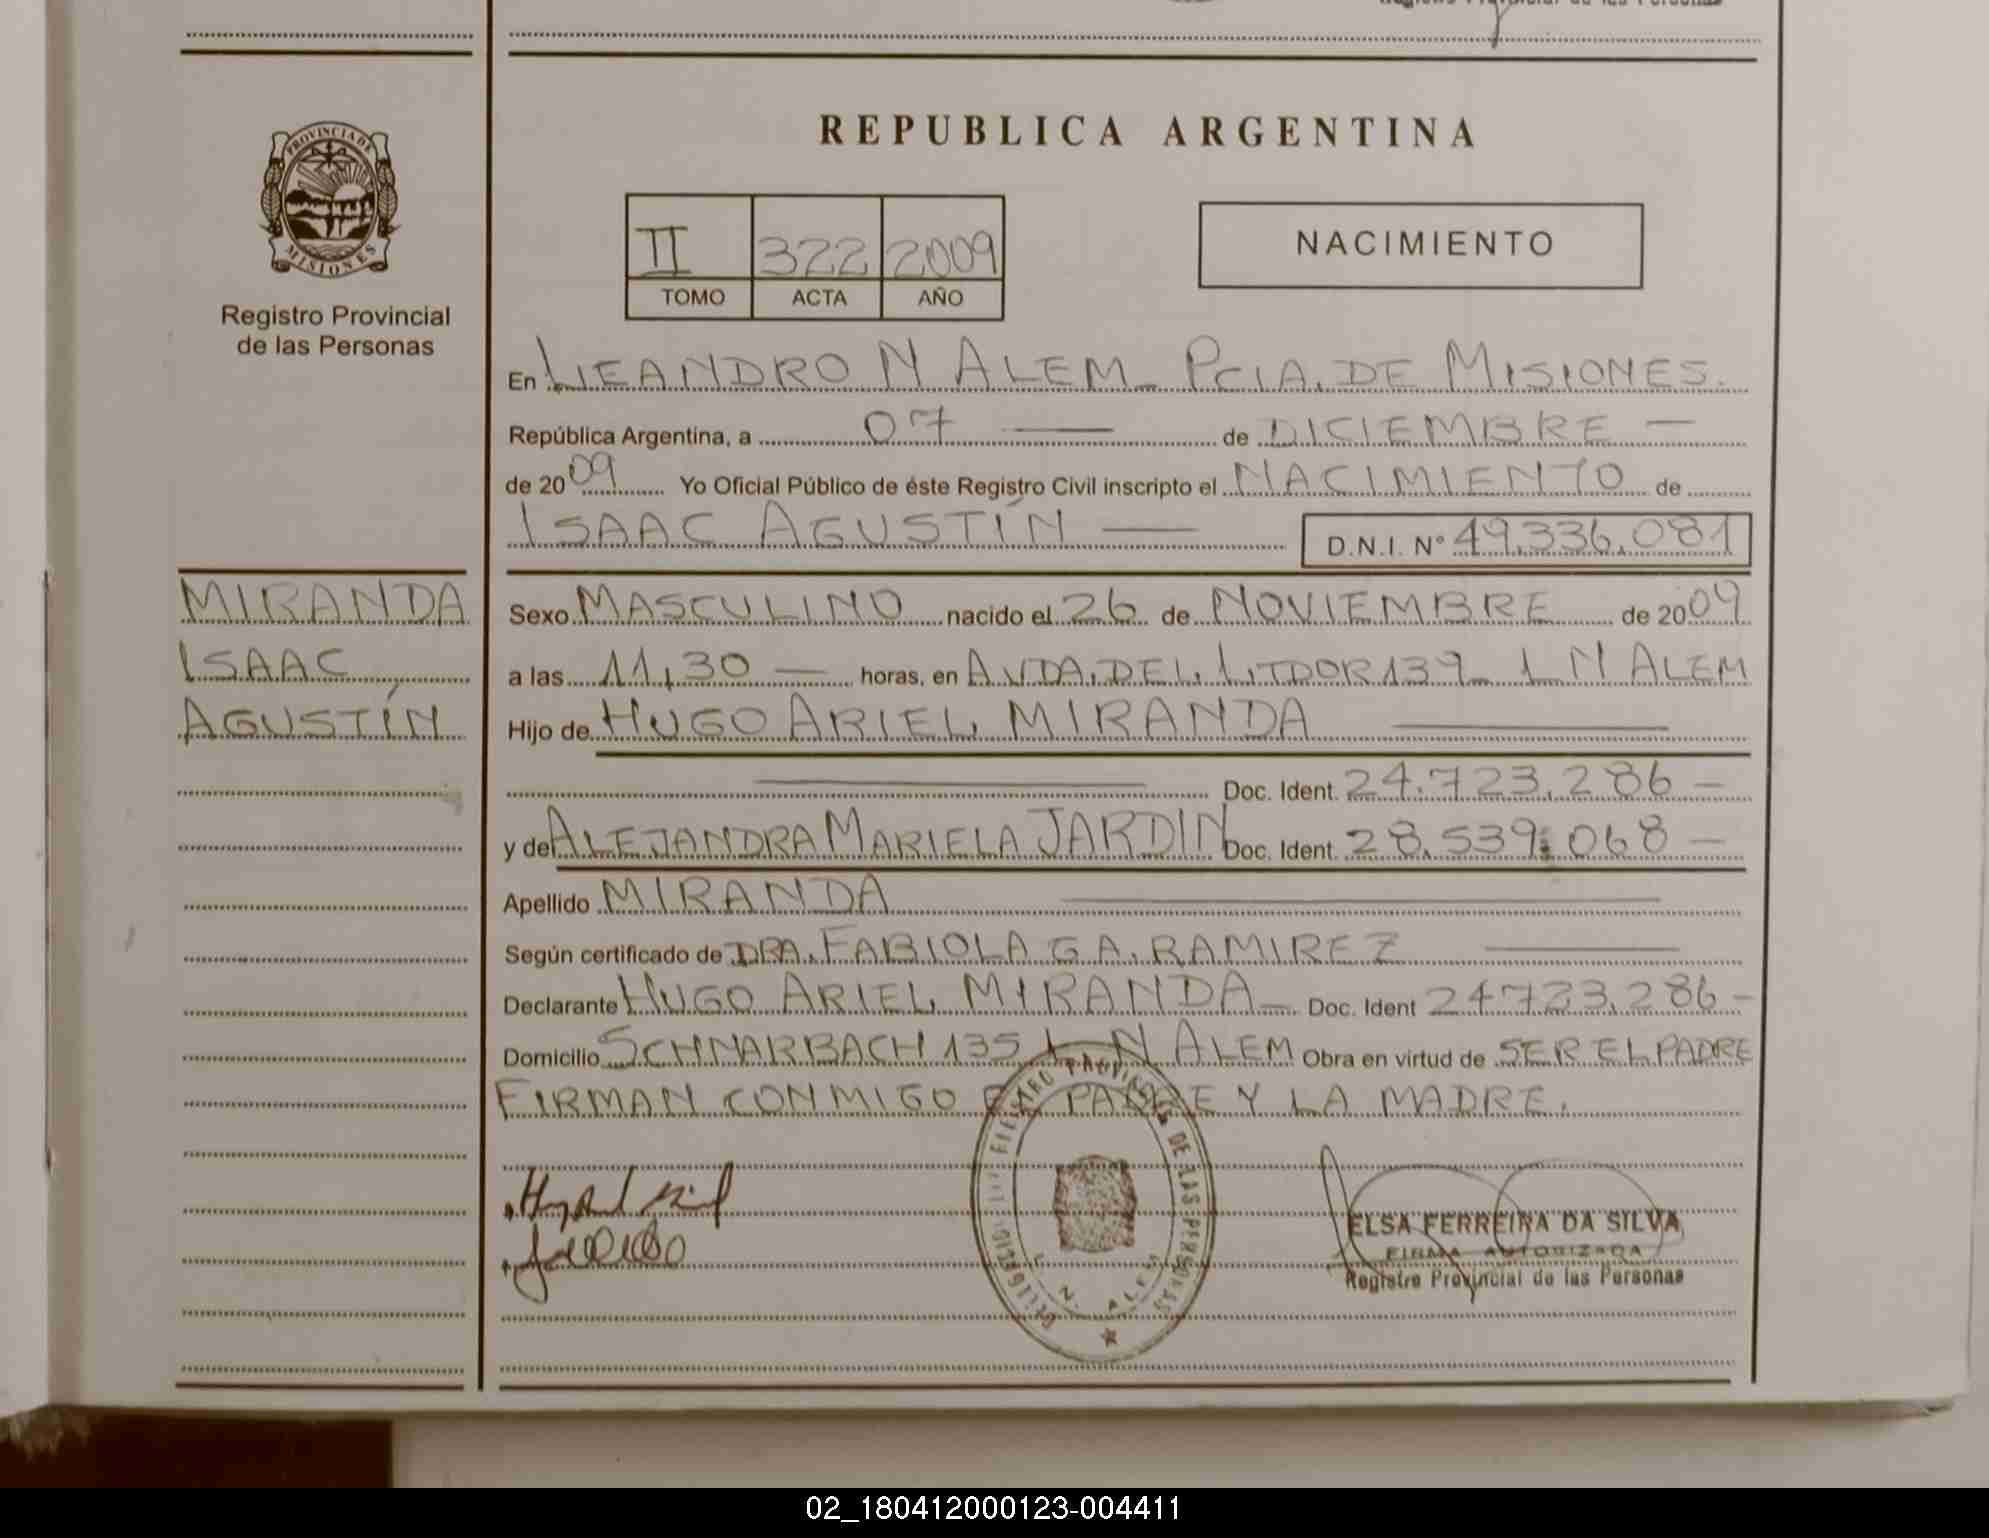 REPUBLICA ARGENTINA
PROVINCIA DE
MISIONES
Registro Provincial
de las Personas
II 322 2009
TOMO ACTA AÑO
NACIMIENTO
En LEANDRO N ALEM - PCIA. DE MISIONES.
República Argentina, a 07 — de DICIEMBRE —
de 2009 Yo Oficial Público de éste Registro Civil inscripto el NACIMIENTO de
ISAAC AGUSTÍN — D.N.I. Nº 49.336.081
MIRANDA
ISAAC
AGUSTÍN
Sexo MASCULINO nacido el 26 de NOVIEMBRE de 2009
a las 11,30 — horas, en AVDA. DEL LTDOR 139 - L N ALEM
Hijo de HUGO ARIEL MIRANDA —
— Doc. Ident. 24.723.286 —
y de ALEJANDRA MARIELA JARDIN Doc. Ident. 28.539.068 —
Apellido MIRANDA —
Según certificado de DRA. FABIOLA G A. RAMIREZ —
Declarante HUGO ARIEL MIRANDA - Doc. Ident 24723.286 -
Domicilio SCHNARBACH 135 L N ALEM Obra en virtud de SER EL PADRE
FIRMAN CONMIGO EL PADRE Y LA MADRE.
REGISTRO PROVINCIAL DE LAS PERSONAS
L. N. ALEM
ELSA FERREIRA DA SILVA
FIRMA AUTORIZADA
Registro Provincial de las Personas
02_180412000123-004411